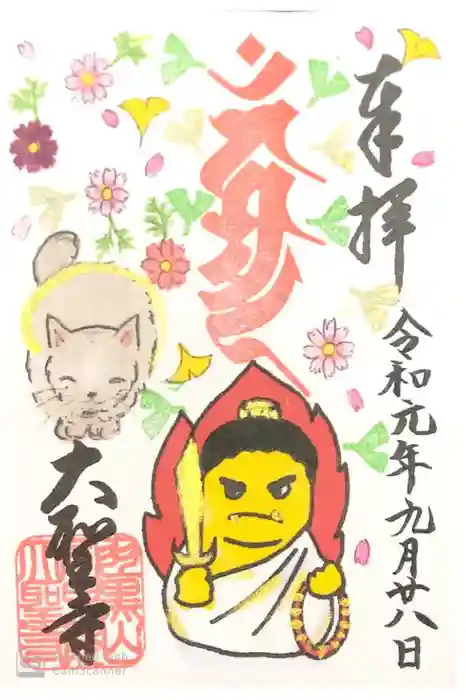 奉拝
令和元年九月廿八日
大聖寺
CamScanner